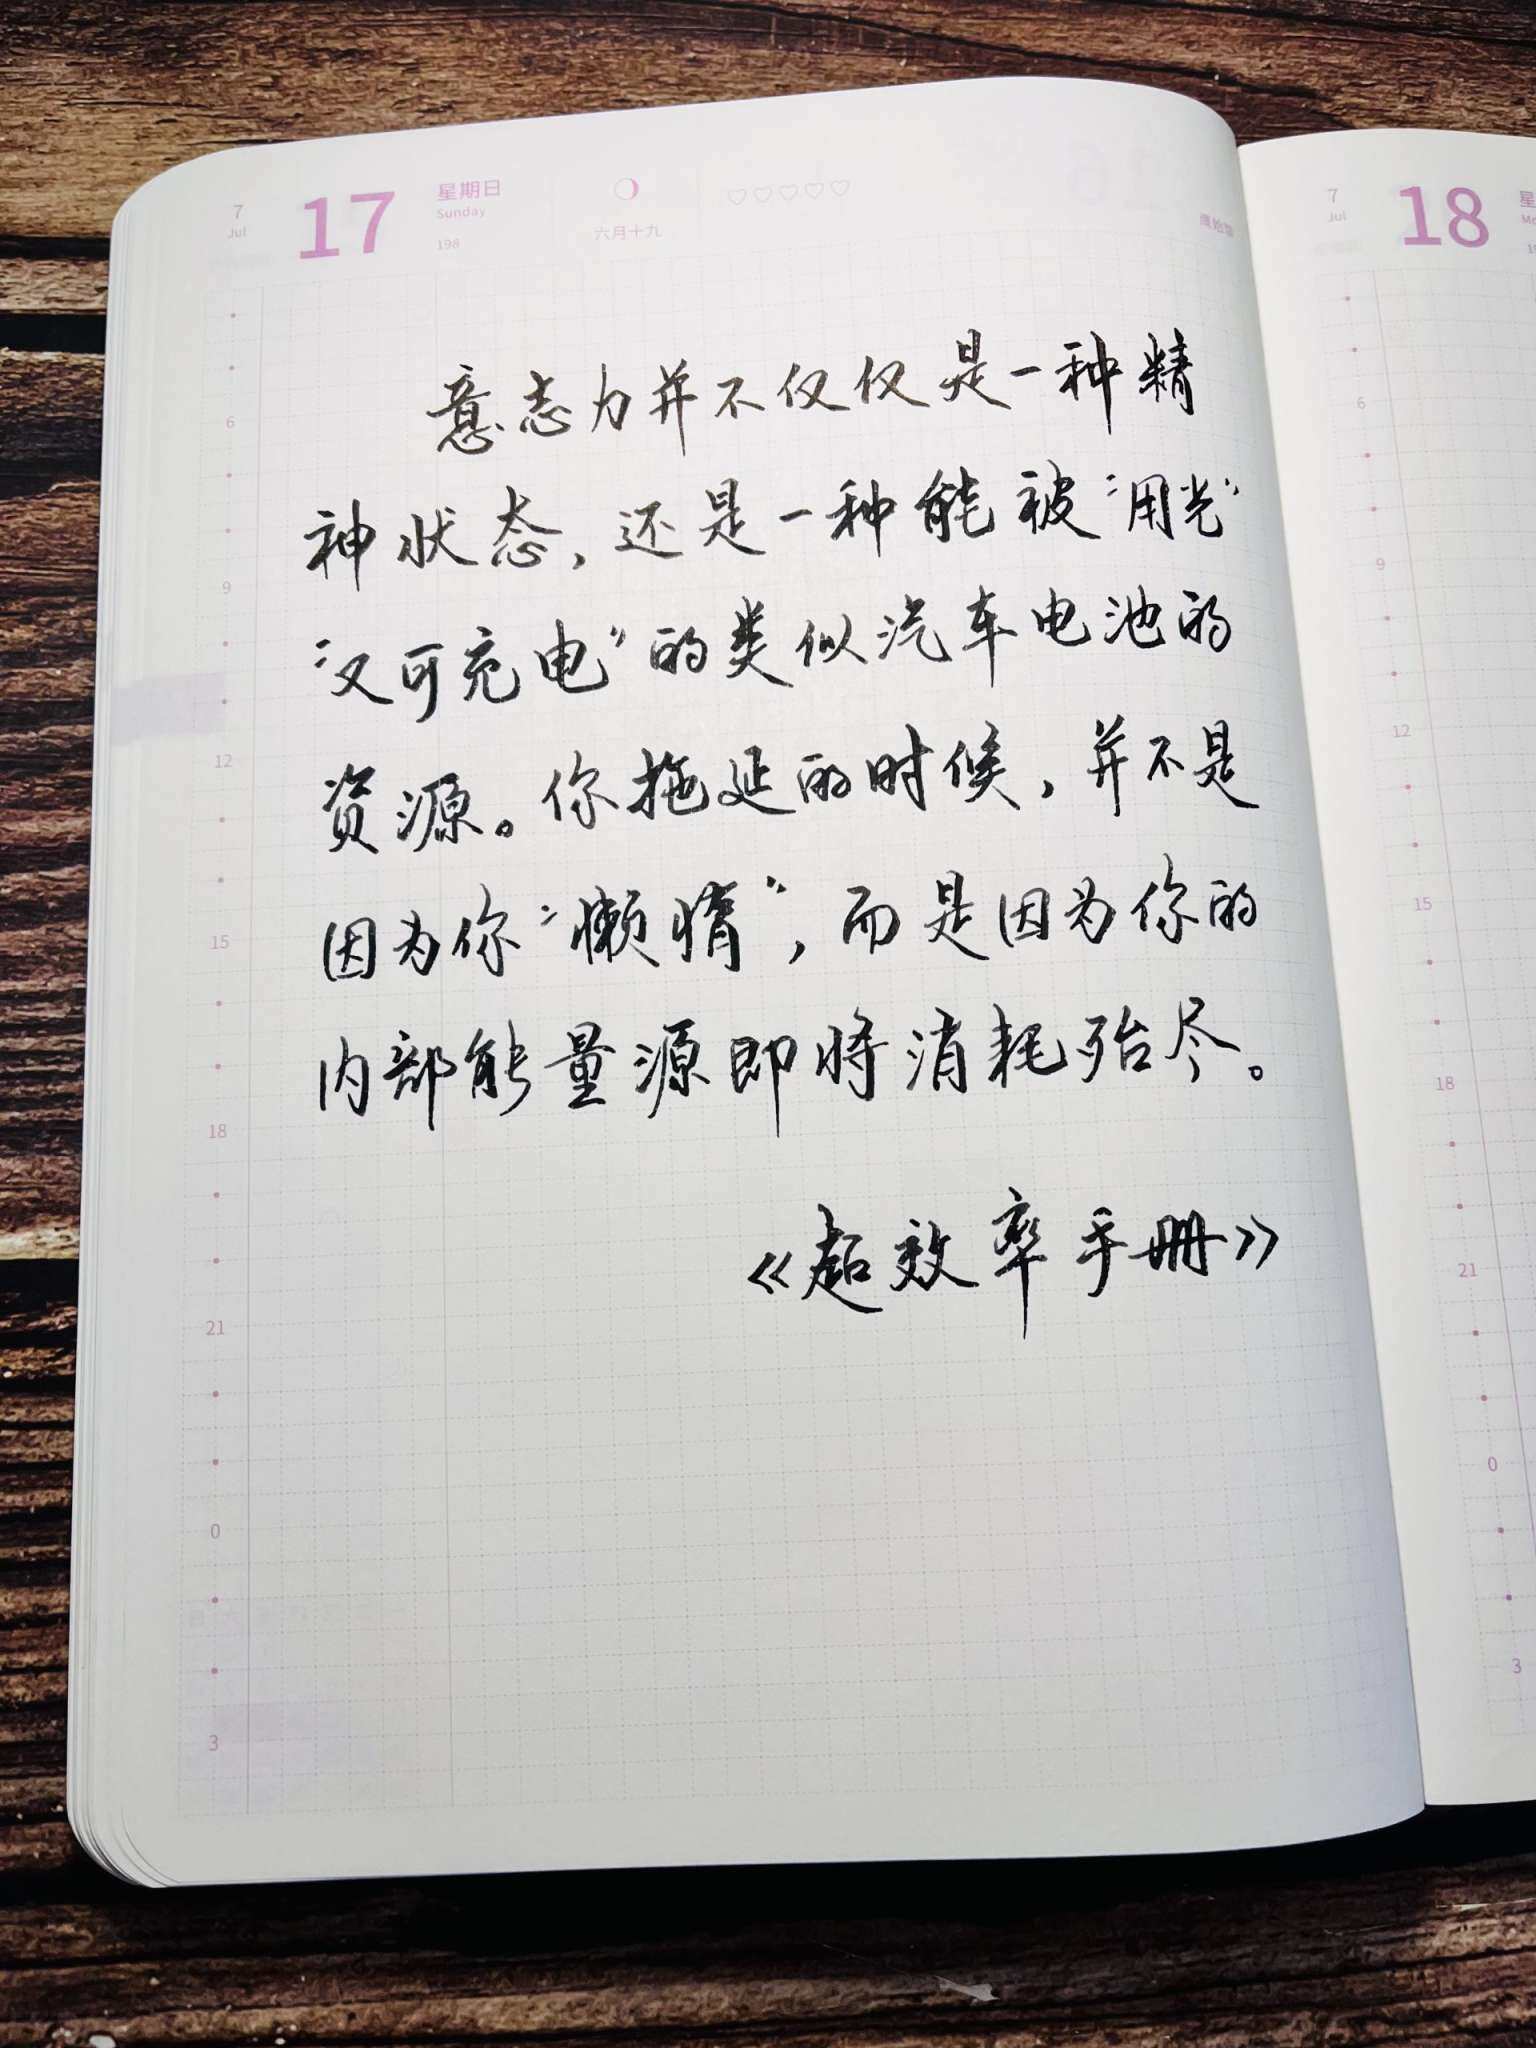 7
Jul
17
星期日
Sunday
198
六月十九
♡♡♡♡♡
意志力并不仅仅是一种精
神状态，还是一种能被“用光”
“又可充电”的类似汽车电池的
资源。你拖延的时候，并不是
因为你“懒惰”，而是因为你的
内部能量源即将消耗殆尽。
《超效率手册》
6
9
12
15
18
21
0
3
7
Jul
18
6
9
12
15
18
21
0
3